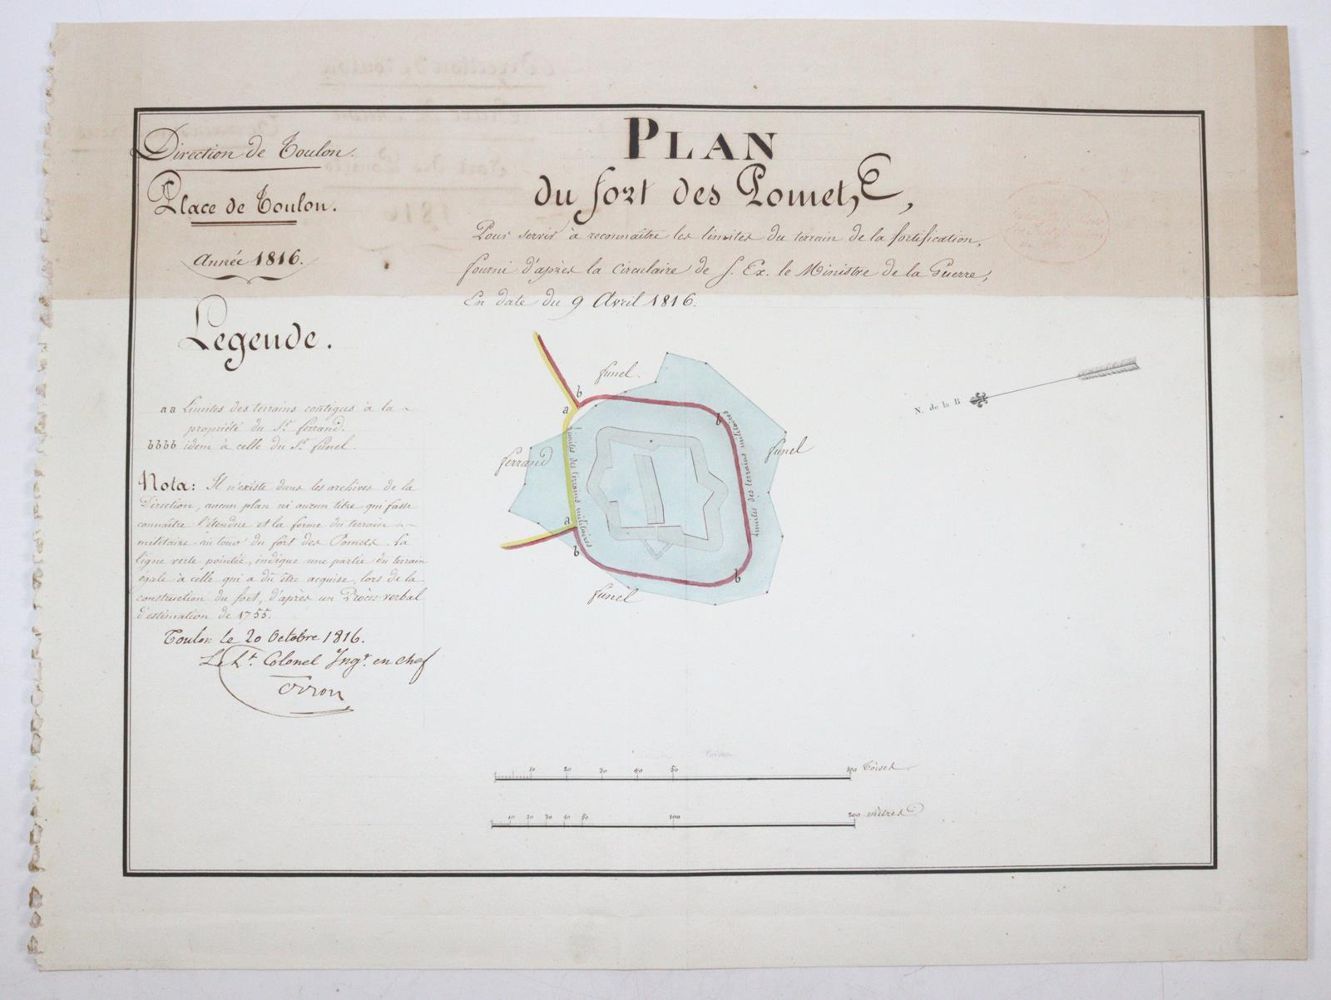 Direction de Toulon.
Place de Toulon.
Année 1816.
PLAN
du fort des Pomets,
Pour servir à reconnaître les limites du terrain de la fortification,
fourni d'après la Circulaire de S. Ex. le Ministre de la Guerre,
En date du 9 Avril 1816.
Legende.
aa Limites des terrains contigus à la
propriété du Sr. ferrand.
bbbb idem à celle du Sr. funel.
Nota: Il n'existe dans les archives de la
Direction, aucun plan ni aucun titre qui fasse
connaître l'étendue et la forme du terrain
militaire au tour du fort des Pomets. La
ligne verte pointée, indique une partie du terrain
égale à celle qui a dû être acquise, lors de la
construction du fort, d'après un Procès verbal
d'estimation de 1755.
Toulon le 20 Octobre 1816.
Le Lt. Colonel Ingr. en chef
funel
b
a
b
ferrand
funel
limites des terrains militaires
limites des terrains militaires
a
b
b
funel
N. de la B
10 20 30 40 50 100 Toises
10 20 30 40 50 100 200 mètres